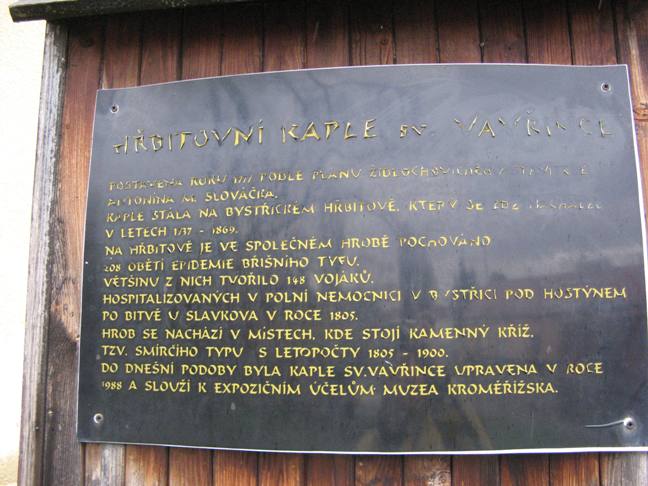 HŘBITOVNÍ KAPLE SV. VAVŘINCE
POSTAVENA ROKU 1777 PODLE PLÁNU
ANTONÍNA M. SLOVÁČKA.
KAPLE STÁLA NA BYSTŘICKÉM HŘBITOVĚ, KTERÝ SE ZDE NACHÁZEL
V LETECH 1737 - 1869.
NA HŘBITOVĚ JE VE SPOLEČNÉM HROBĚ POCHOVÁNO
208 OBĚTÍ EPIDEMIE BŘIŠNÍHO TYFU.
VĚTŠINU Z NICH TVOŘILO 148 VOJÁKŮ.
HOSPITALIZOVANÝCH V POLNÍ NEMOCNICI V BYSTŘICI POD HOSTÝNEM
PO BITVĚ U SLAVKOVA V ROCE 1805.
HROB SE NACHÁZÍ V MÍSTECH, KDE STOJÍ KAMENNÝ KŘÍŽ.
TZV. SMÍRČÍHO TYPU S LETOPOČTY 1805 - 1900.
DO DNEŠNÍ PODOBY BYLA KAPLE SV.VAVŘINCE UPRAVENA V ROCE
1988 A SLOUŽÍ K EXPOZIČNÍM ÚČELŮM MUZEA KROMĚŘÍŽSKA.